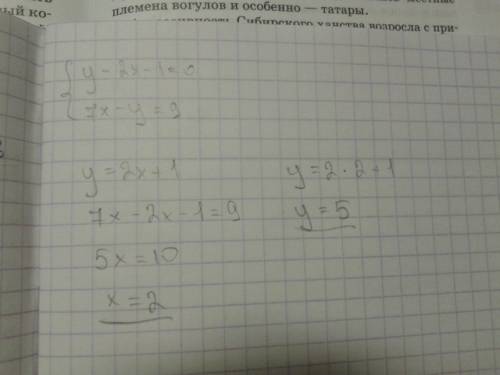 ый ко-
племена вогулов и особенно — татары.
Сибирского ханства возросла с при-
y - 2x - 1 = 0
7x - y = 9
y = 2x + 1
7x - 2x - 1 = 9
5x = 10
x = 2
y = 2 · 2 + 1
y = 5